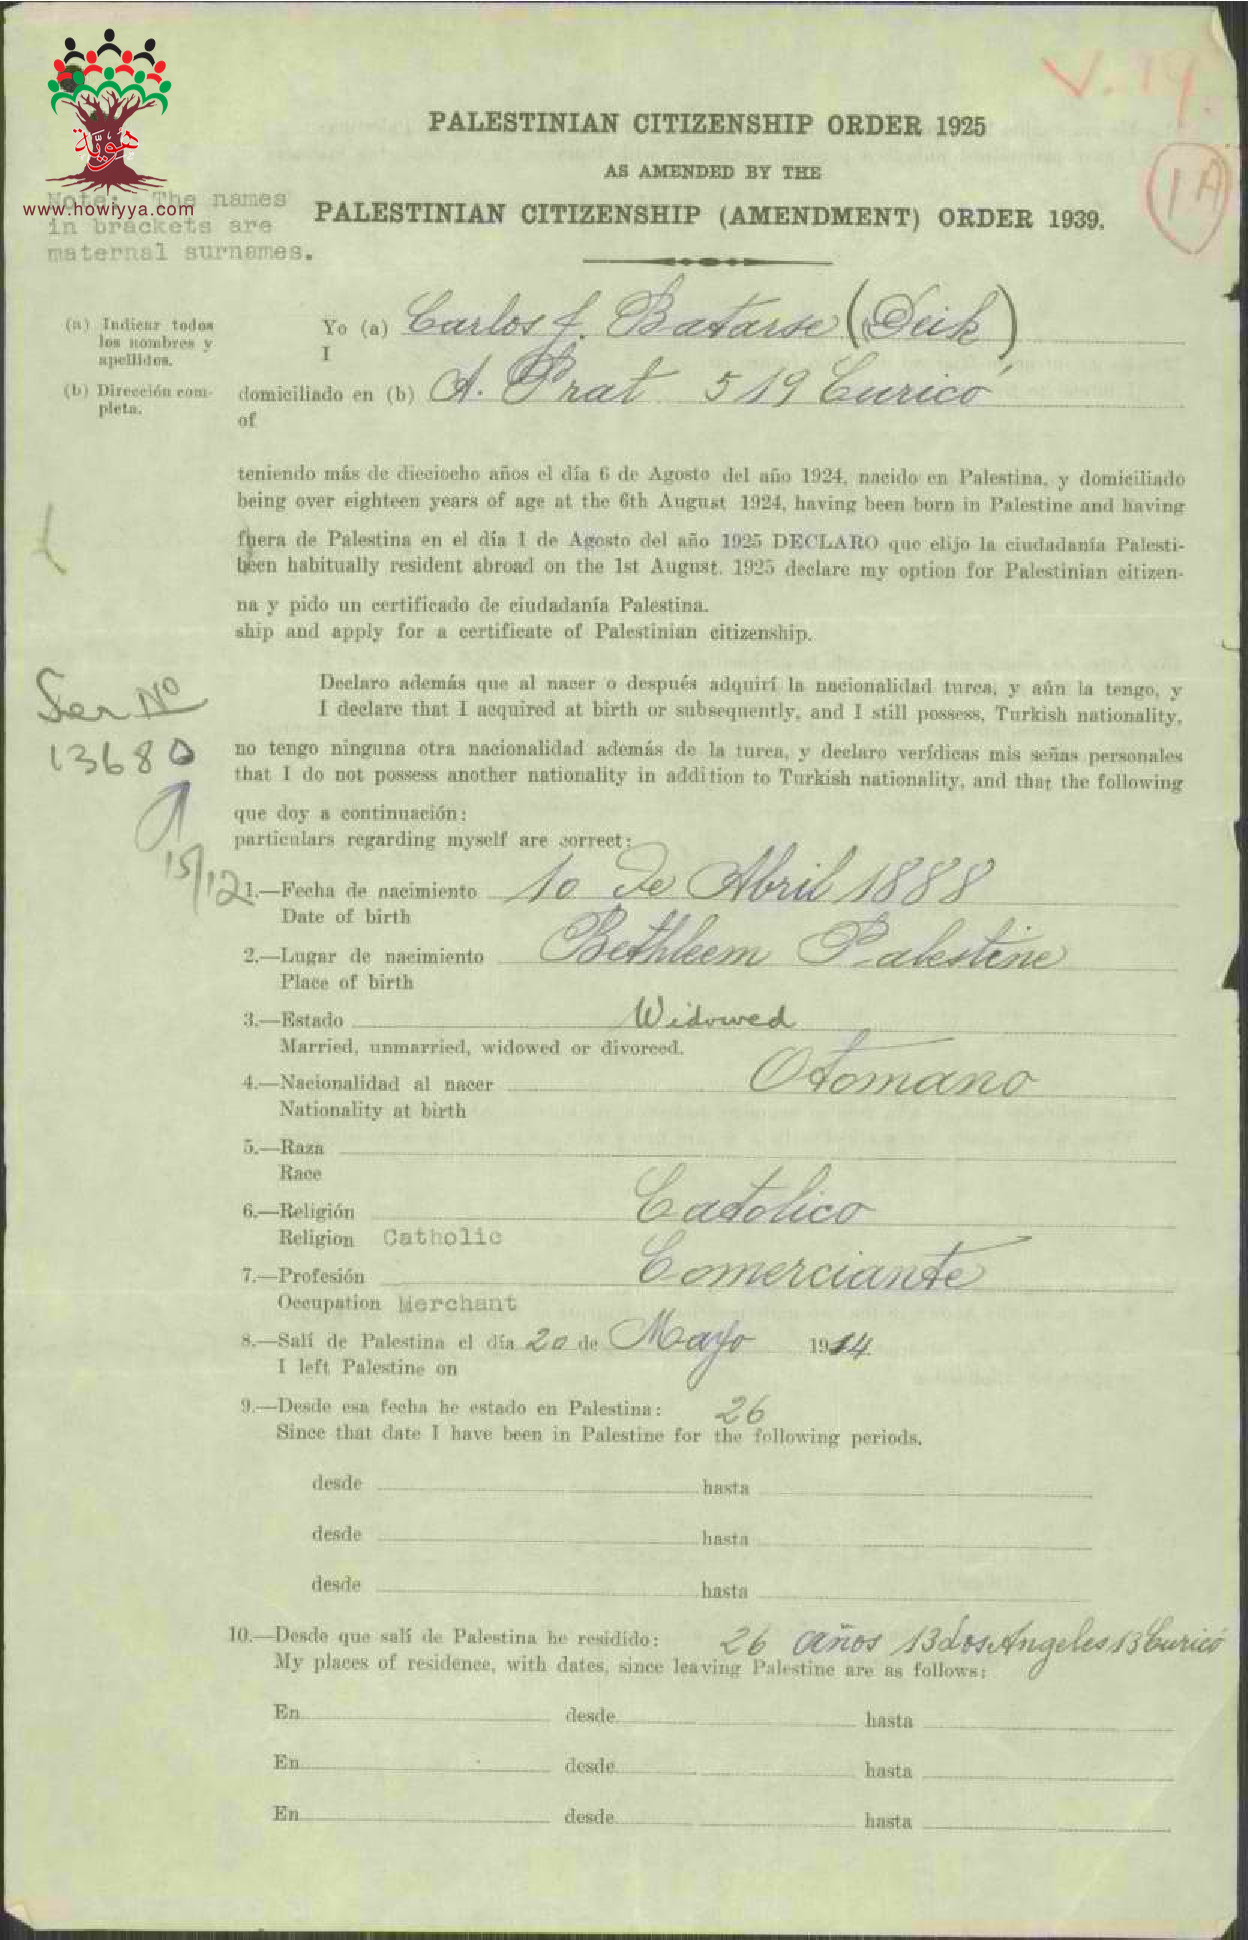 V. 19.
1A
هوية
www.howiyya.com
PALESTINIAN CITIZENSHIP ORDER 1925
AS AMENDED BY THE
PALESTINIAN CITIZENSHIP (AMENDMENT) ORDER 1939.
Note: The names
in brackets are
maternal surnames.
(a) Indicar todos
los nombres y
apellidos.
Yo (a) Carlos J. Batarse (Deik)
I
(b) Dirección com-
pleta.
domiciliado en (b) A. Prat 519 Curicó
of
teniendo más de dieciocho años el día 6 de Agosto del año 1924, nacido en Palestina, y domiciliado
being over eighteen years of age at the 6th August 1924, having been born in Palestine and having
fuera de Palestina en el día 1 de Agosto del año 1925 DECLARO que elijo la ciudadanía Palesti-
been habitually resident abroad on the 1st August. 1925 declare my option for Palestinian citizen-
na y pido un certificado de ciudadanía Palestina.
ship and apply for a certificate of Palestinian citizenship.
Declaro además que al nacer o después adquirí la nacionalidad turca, y aún la tengo, y
I declare that I acquired at birth or subsequently, and I still possess, Turkish nationality,
no tengo ninguna otra nacionalidad además de la turca, y declaro verídicas mis señas personales
that I do not possess another nationality in addition to Turkish nationality, and that the following
que doy a continuación:
particulars regarding myself are correct:
Ser No
13680
15/12
1.—Fecha de nacimiento 10 de Abril 1888
Date of birth
2.—Lugar de nacimiento Bethleem Palestine
Place of birth
3.—Estado Widowed
Married, unmarried, widowed or divorced.
4.—Nacionalidad al nacer Otomano
Nationality at birth
5.—Raza
Race
6.—Religión Catolico
Religion Catholic
7.—Profesión Comerciante
Occupation Merchant
8.—Salí de Palestina el día 20 de Mayo 1914.
I left Palestine on
9.—Desde esa fecha he estado en Palestina: 26
Since that date I have been in Palestine for the following periods.
desde hasta
desde hasta
desde hasta
10.—Desde que salí de Palestina he residido: 26 años 13 Los Angeles 13 Curicó
My places of residence, with dates, since leaving Palestine are as follows:
En desde hasta
En desde hasta
En desde hasta